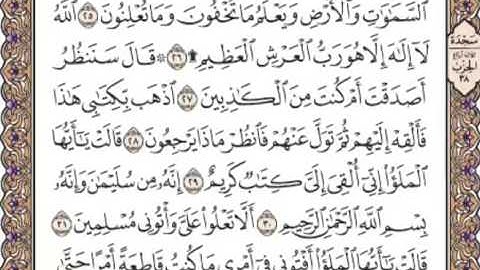 السَّمَٰوَٰتِ وَالْأَرْضِ وَيَعْلَمُ مَا تُخْفُونَ وَمَا تُعْلِنُونَ ٢٥ اللَّهُ
لَا إِلَٰهَ إِلَّا هُوَ رَبُّ الْعَرْشِ الْعَظِيمِ ۩ ٢٦ ۞ قَالَ سَنَنظُرُ
أَصَدَقْتَ أَمْ كُنتَ مِنَ الْكَٰذِبِينَ ٢٧ اذْهَب بِّكِتَٰبِي هَٰذَا
فَأَلْقِهْ إِلَيْهِمْ ثُمَّ تَوَلَّ عَنْهُمْ فَانظُرْ مَاذَا يَرْجِعُونَ ٢٨ قَالَتْ يَٰٓأَيُّهَا
الْمَلَؤُا إِنِّي أُلْقِيَ إِلَيَّ كِتَٰبٌ كَرِيمٌ ٢٩ إِنَّهُ مِن سُلَيْمَٰنَ وَإِنَّهُ
بِسْمِ اللَّهِ الرَّحْمَٰنِ الرَّحِيمِ ٣٠ أَلَّا تَعْلُوا عَلَيَّ وَأْتُونِي مُسْلِمِينَ ٣١
قَالَتْ يَٰٓأَيُّهَا الْمَلَؤُا أَفْتُونِي فِي أَمْرِي مَا كُنتُ قَاطِعَةً أَمْرًا حَتَّىٰ
سَجْدَة
الحزب
٣٨